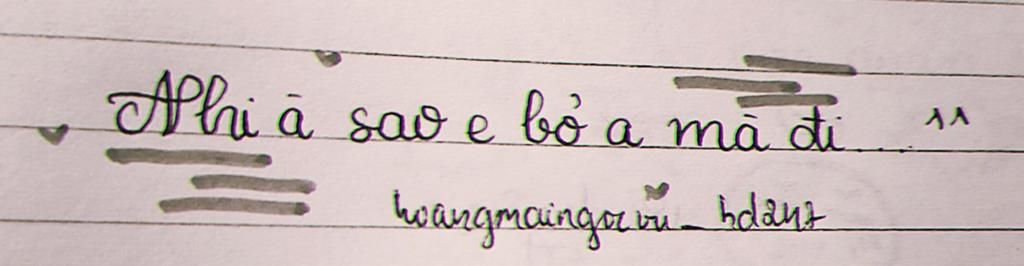 Nhi à sao e bỏ a mà đi... ^^
hoangmaingocvũ_hd2k7